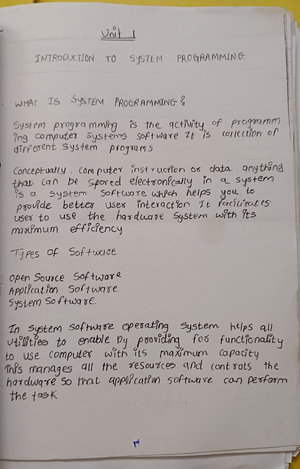 Unit 1
INTRODUCTION TO SYSTEM PROGRAMMING
WHAT IS SYSTEM PROGRAMMING?
System programming is the activity of programm
ing computer systems software It is collection of
different system programs
Conceptually, computer instruction or data anything
that can be stored electronically in a system
is a system software which helps you to
provide better user interaction It facilitates
user to use the hardware system with its
maximum efficiency
Types of Software
Open Source Software
Application Software
System Software
In system software operating system helps all
utilities to enable by providing for functionality
to use computer with its maximum capacity
This manages all the resources and controls the
hardware so that application software can perform
the task